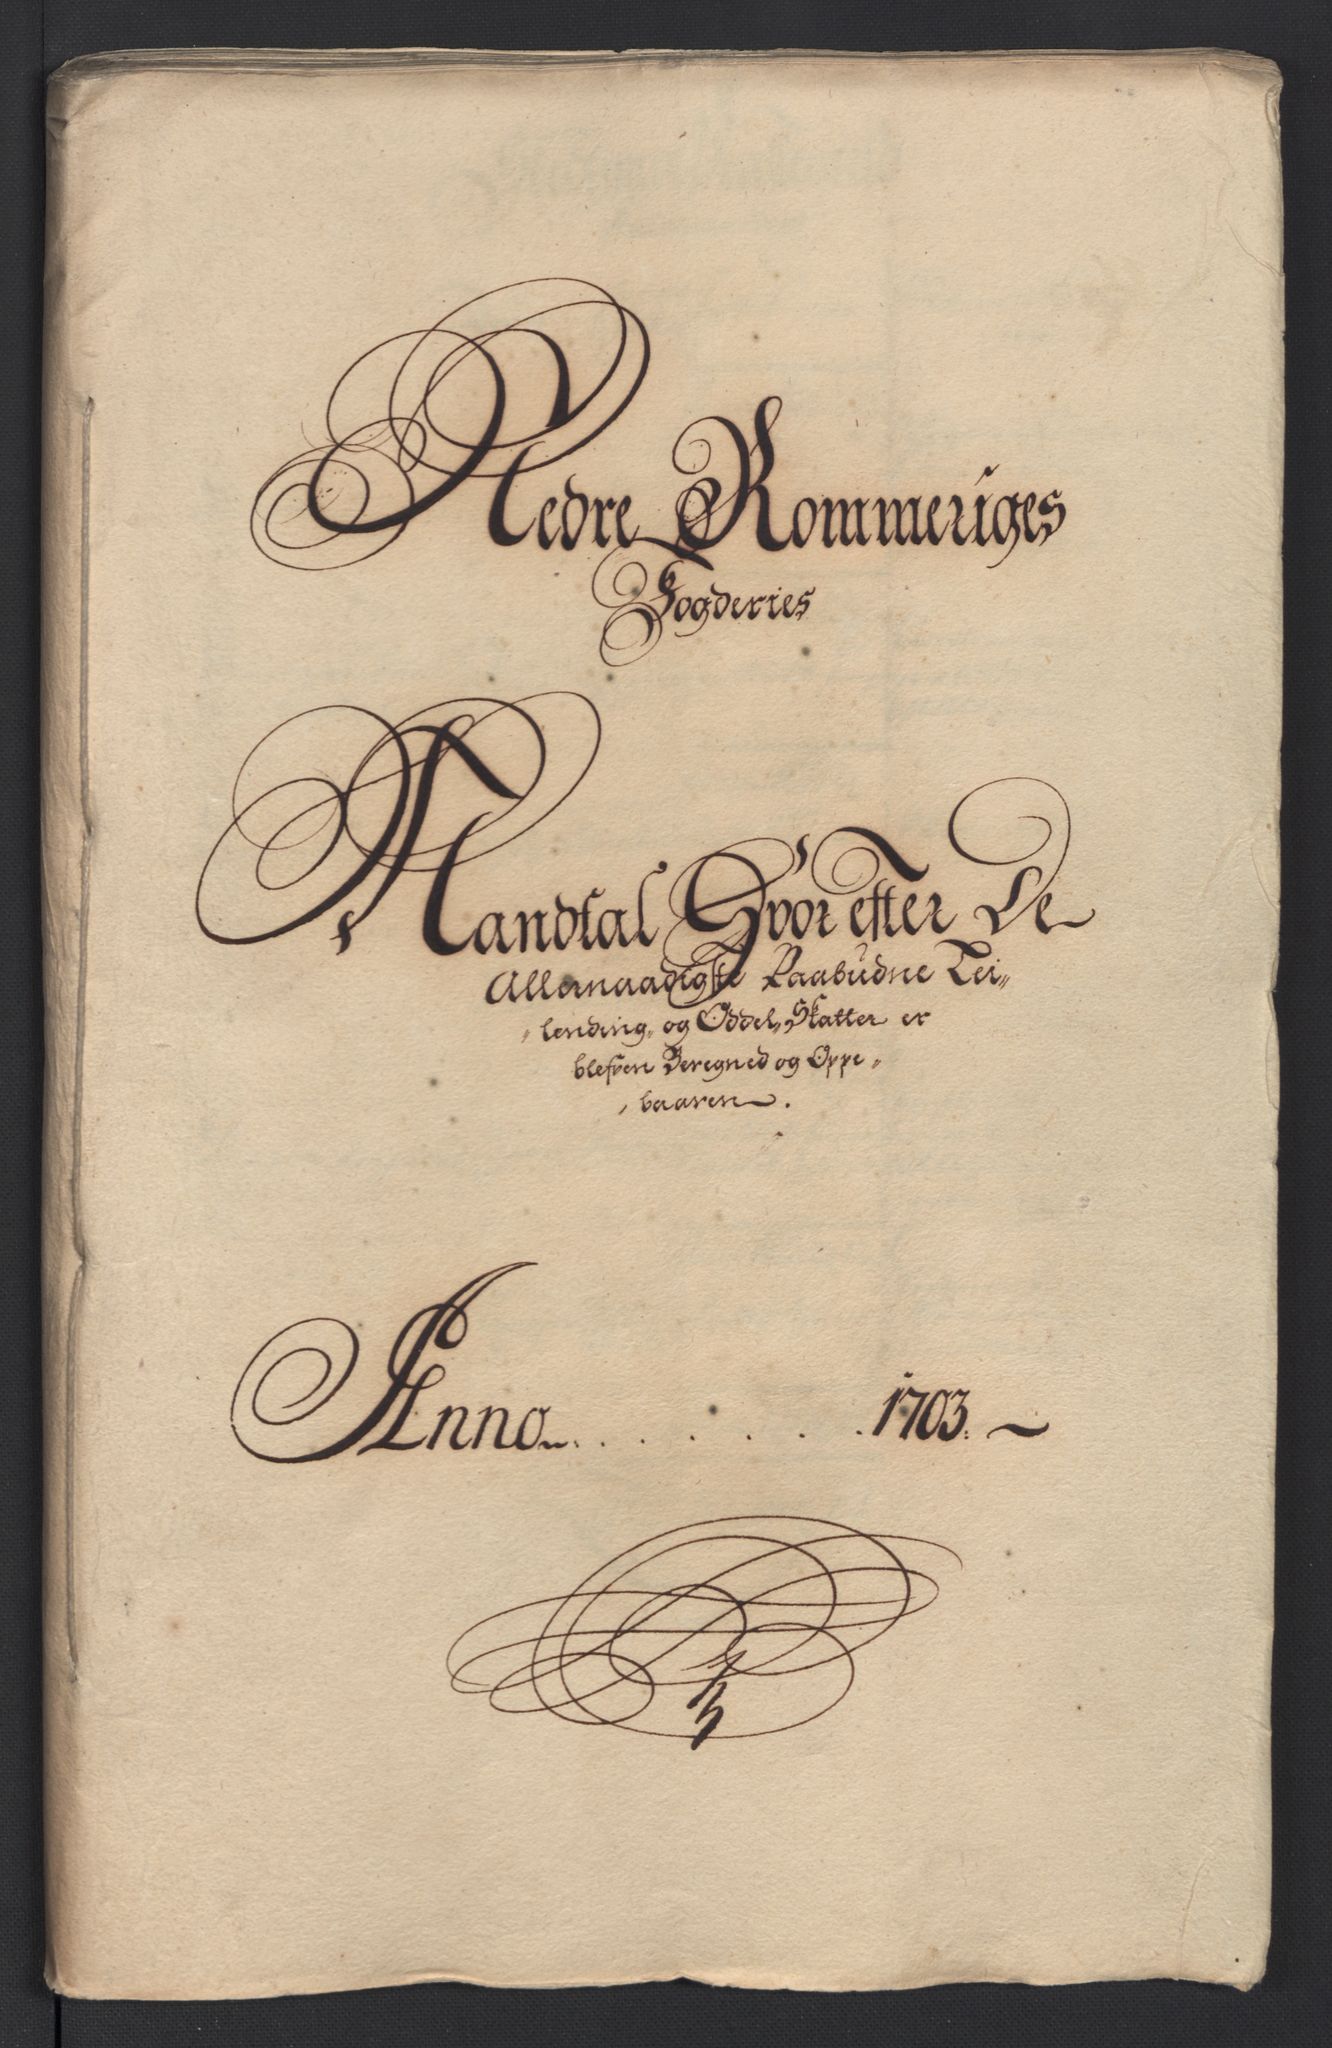 Nedre Rommeriges
Fogderies
Mandtal Hvor efter De
Allernaadigste Paabudne Lei„
„lending„ og Oddel„ Skatter er
blefven Beregned og Oppe„
„baaren.
Anno . . . . . . . 1703.